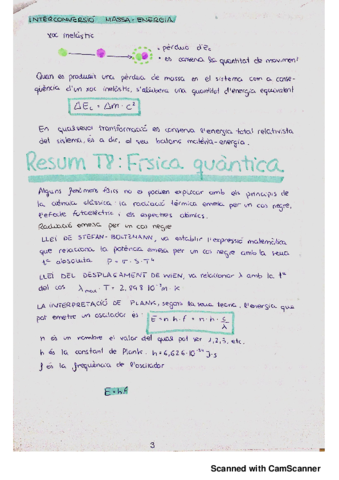 INTERCONVERSIÓ MASSA-ENERGIA
xoc inelàstic
• pèrdua d'Ec
• es conserva la quantitat de moviment
Quan es produeix una pèrdua de massa en el sistema com a conse-
qüència d'un xoc inelàstic, s'allibera una quantitat d'energia equivalent
ΔEL = Δm · c²
En qualsevol transformació es conserva l'energia total relativista
del sistema, és a dir, el seu balanç matèria-energia.
Resum TP: Física quàntica.
Alguns fenòmens físics no es poden explicar amb els principis de
la ciència clàssica: la radiació tèrmica emesa per un cos negre,
l'efecte fotoelèctric i els espectres atòmics.
Radiació emesa per un cos negre
LLEI DE STEFAN-BOLTZMANN, va establir l'expressió matemàtica
que relaciona la potència emesa per un cos negre amb la seua
tª absoluta P = σ · S · T⁴
LLEI DEL DESPLAÇAMENT DE WIEN, va relacionar λ amb la tª
del cos λmax · T = 2,898 · 10⁻³ m · K
LA INTERPRETACIÓ DE PLANK, segons la seua teoria, l'energia que
pot emetre un oscil·lador és: E = n · h · f = n · h · c/λ
n és un nombre el valor del qual pot ser 1, 2, 3, etc.
h és la constant de Plank. h = 6,626 · 10⁻³⁴ J·s
f és la freqüència de l'oscil·lador
E = h·f
3
Scanned with CamScanner